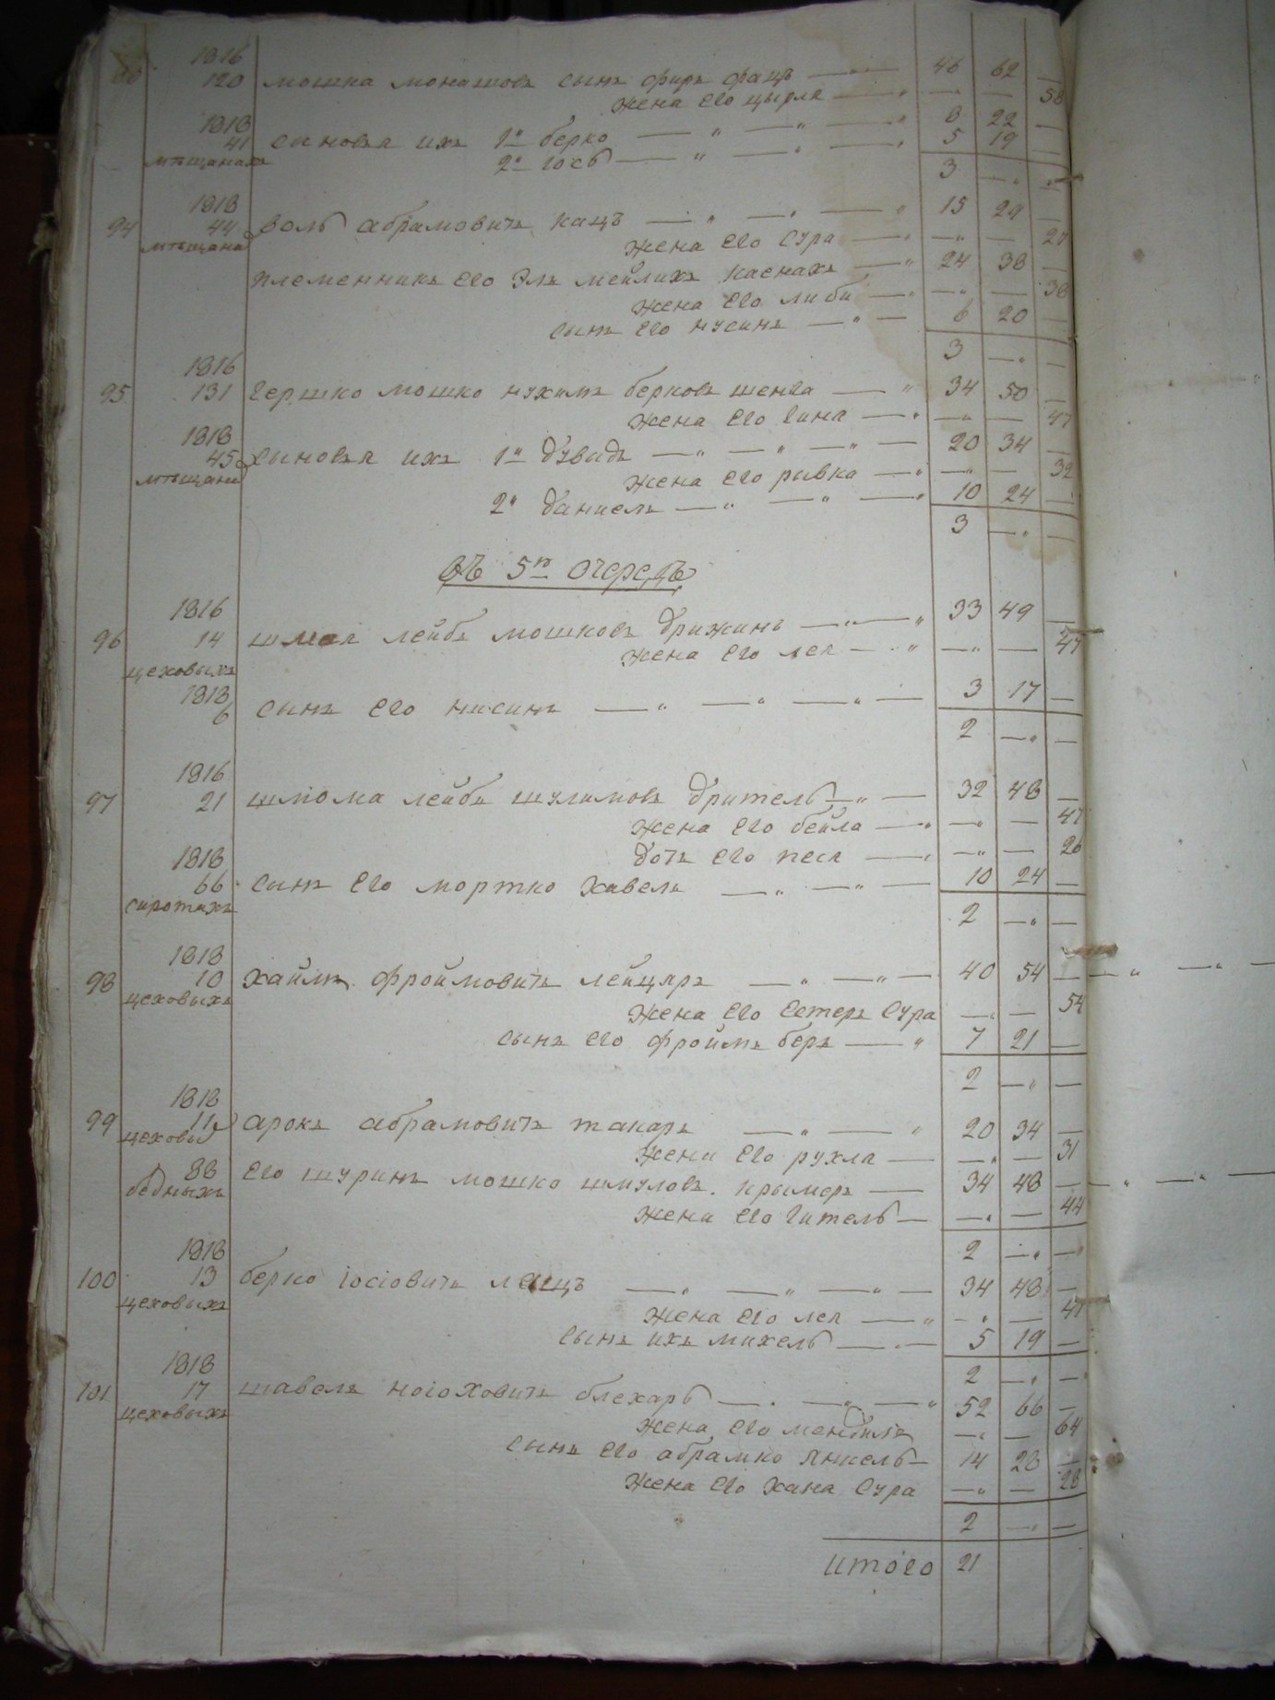 1816
120 мошка монашовъ сынъ фиръ фацъ 46 62
жена его цырля 58
1818
41 сыновья ихъ 1й берко 8 22
мѣщанахъ 2й іосъ 5 19
3
1818
94 44 воль абрамовичъ кацъ 15 29
мѣщана жена его сура 27
племенникъ его Эль мейлихъ 24 38
жена его либа 36
сынъ его нусинъ 6 20
3
1816
95 131 гершко мошко нухимъ берковъ шенга 34 50
жена его гина 47
1818
45 сыновья ихъ 1й дувидъ 20 34
мѣщана жена его ривка 32
2й даниель 10 24
3
въ 5й очередь
1816
96 14 шмая лейбъ мошковъ дрижинъ 33 49
цеховыхъ жена его лея 47
1818
6 сынъ его нисинъ 3 17
2
1816
97 21 шліома лейбъ шулимовъ дритель 32 48
жена его бейла 47
дочь его песя 26
1818
66 сынъ его мортко хавель 10 24
сиротахъ
2
1818
98 10 хаимъ фроймовичъ лейцяръ 40 54
цеховыхъ жена его Естеръ Сура 54
сынъ его фроимъ беръ 7 21
2
1818
99 11 аронъ абрамовичъ токаръ 20 34
цеховы жена его рухля 31
88 его шуринъ мошко шмуловъ крымеръ 34 48
бѣдныхъ жена его гитель 44
2
1818
100 13 берко іосіовичъ лящъ 34 48
цеховыхъ жена его лея 47
сынъ ихъ михель 5 19
2
1818
101 17 шавель ноіоховичъ блехаръ 52 66
цеховыхъ жена его мендиля 64
сынъ его абрамко янкель 14 28
жена его хана сура 28
2
итого 21